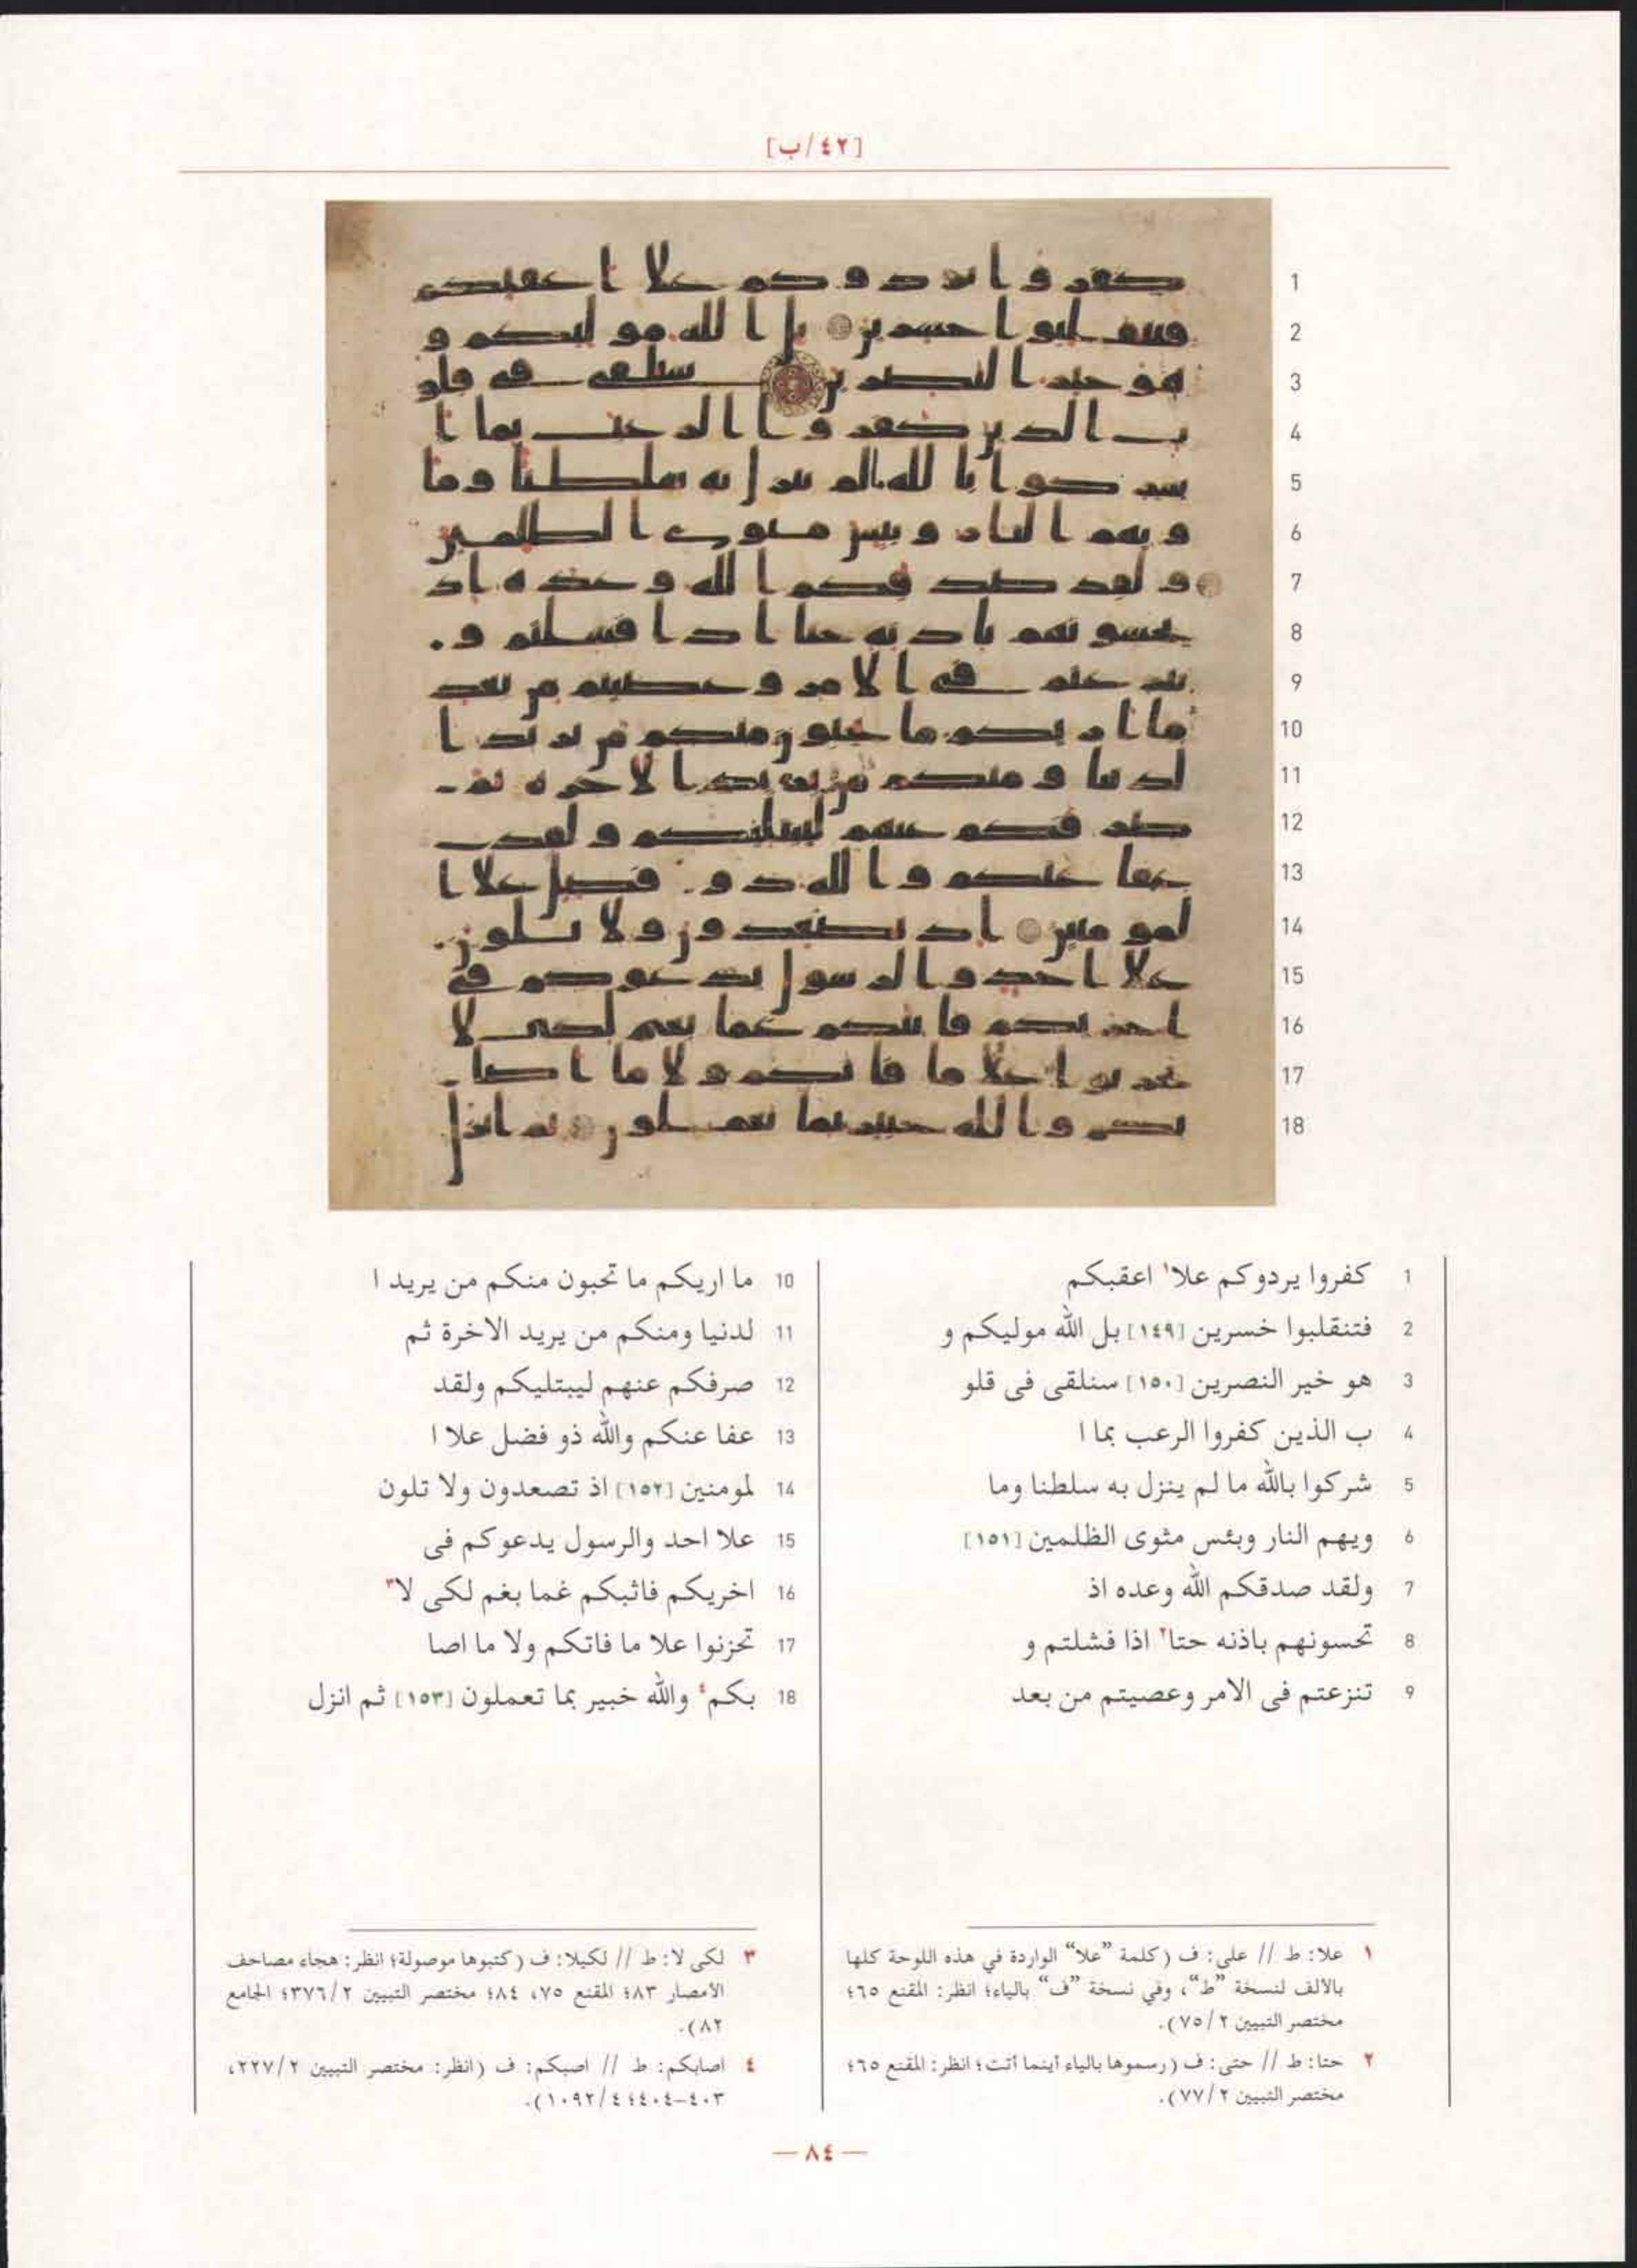 [٤٢/ب]
1 كفروا يردوكم علا١ اعقبكم
2 فتنقلبوا خسرين [١٤٩] بل الله موليكم و
3 هو خير النصرين [١٥٠] سنلقى فى قلو
4 ب الذين كفروا الرعب بما ا
5 شركوا بالله ما لم ينزل به سلطنا وما
6 ويهم النار وبئس مثوى الظلمين [١٥١]
7 ولقد صدقكم الله وعده اذ
8 تحسونهم باذنه حتا٢ اذا فشلتم و
9 تنزعتم فى الامر وعصيتم من بعد
10 ما اريكم ما تحبون منكم من يريد ا
11 لدنيا ومنكم من يريد الاخرة ثم
12 صرفكم عنهم ليبتليكم ولقد
13 عفا عنكم والله ذو فضل علا ا
14 لمومنين [١٥٢] اذ تصعدون ولا تلون
15 علا احد والرسول يدعوكم فى
16 اخريكم فاثبكم غما بغم لكى لا٣
17 تحزنوا علا ما فاتكم ولا ما اصا
18 بكم٤ والله خبير بما تعملون [١٥٣] ثم انزل
١ علا: ط // على: ف (كلمة ”علا“ الواردة في هذه اللوحة كلها
بالالف لنسخة ”ط“، وفي نسخة ”ف“ بالياء؛ انظر: المقنع ٦٥؛
مختصر التبيين ٧٥/٢).
٢ حتا: ط // حتى: ف (رسموها بالياء أينما أتت؛ انظر: المقنع ٦٥؛
مختصر التبيين ٧٧/٢).
٣ لكى لا: ط // لكيلا: ف (كتبوها موصولة؛ انظر: هجاء مصاحف
الأمصار ٨٣؛ المقنع ٧٥، ٨٤؛ مختصر التبيين ٣٧٦/٢؛ الجامع
٨٢).
٤ اصابكم: ط // اصبكم: ف (انظر: مختصر التبيين ٢٢٧/٢،
٤٠٣-٤٠٤؛ ١٠٩٢/٤).
— ٨٤ —